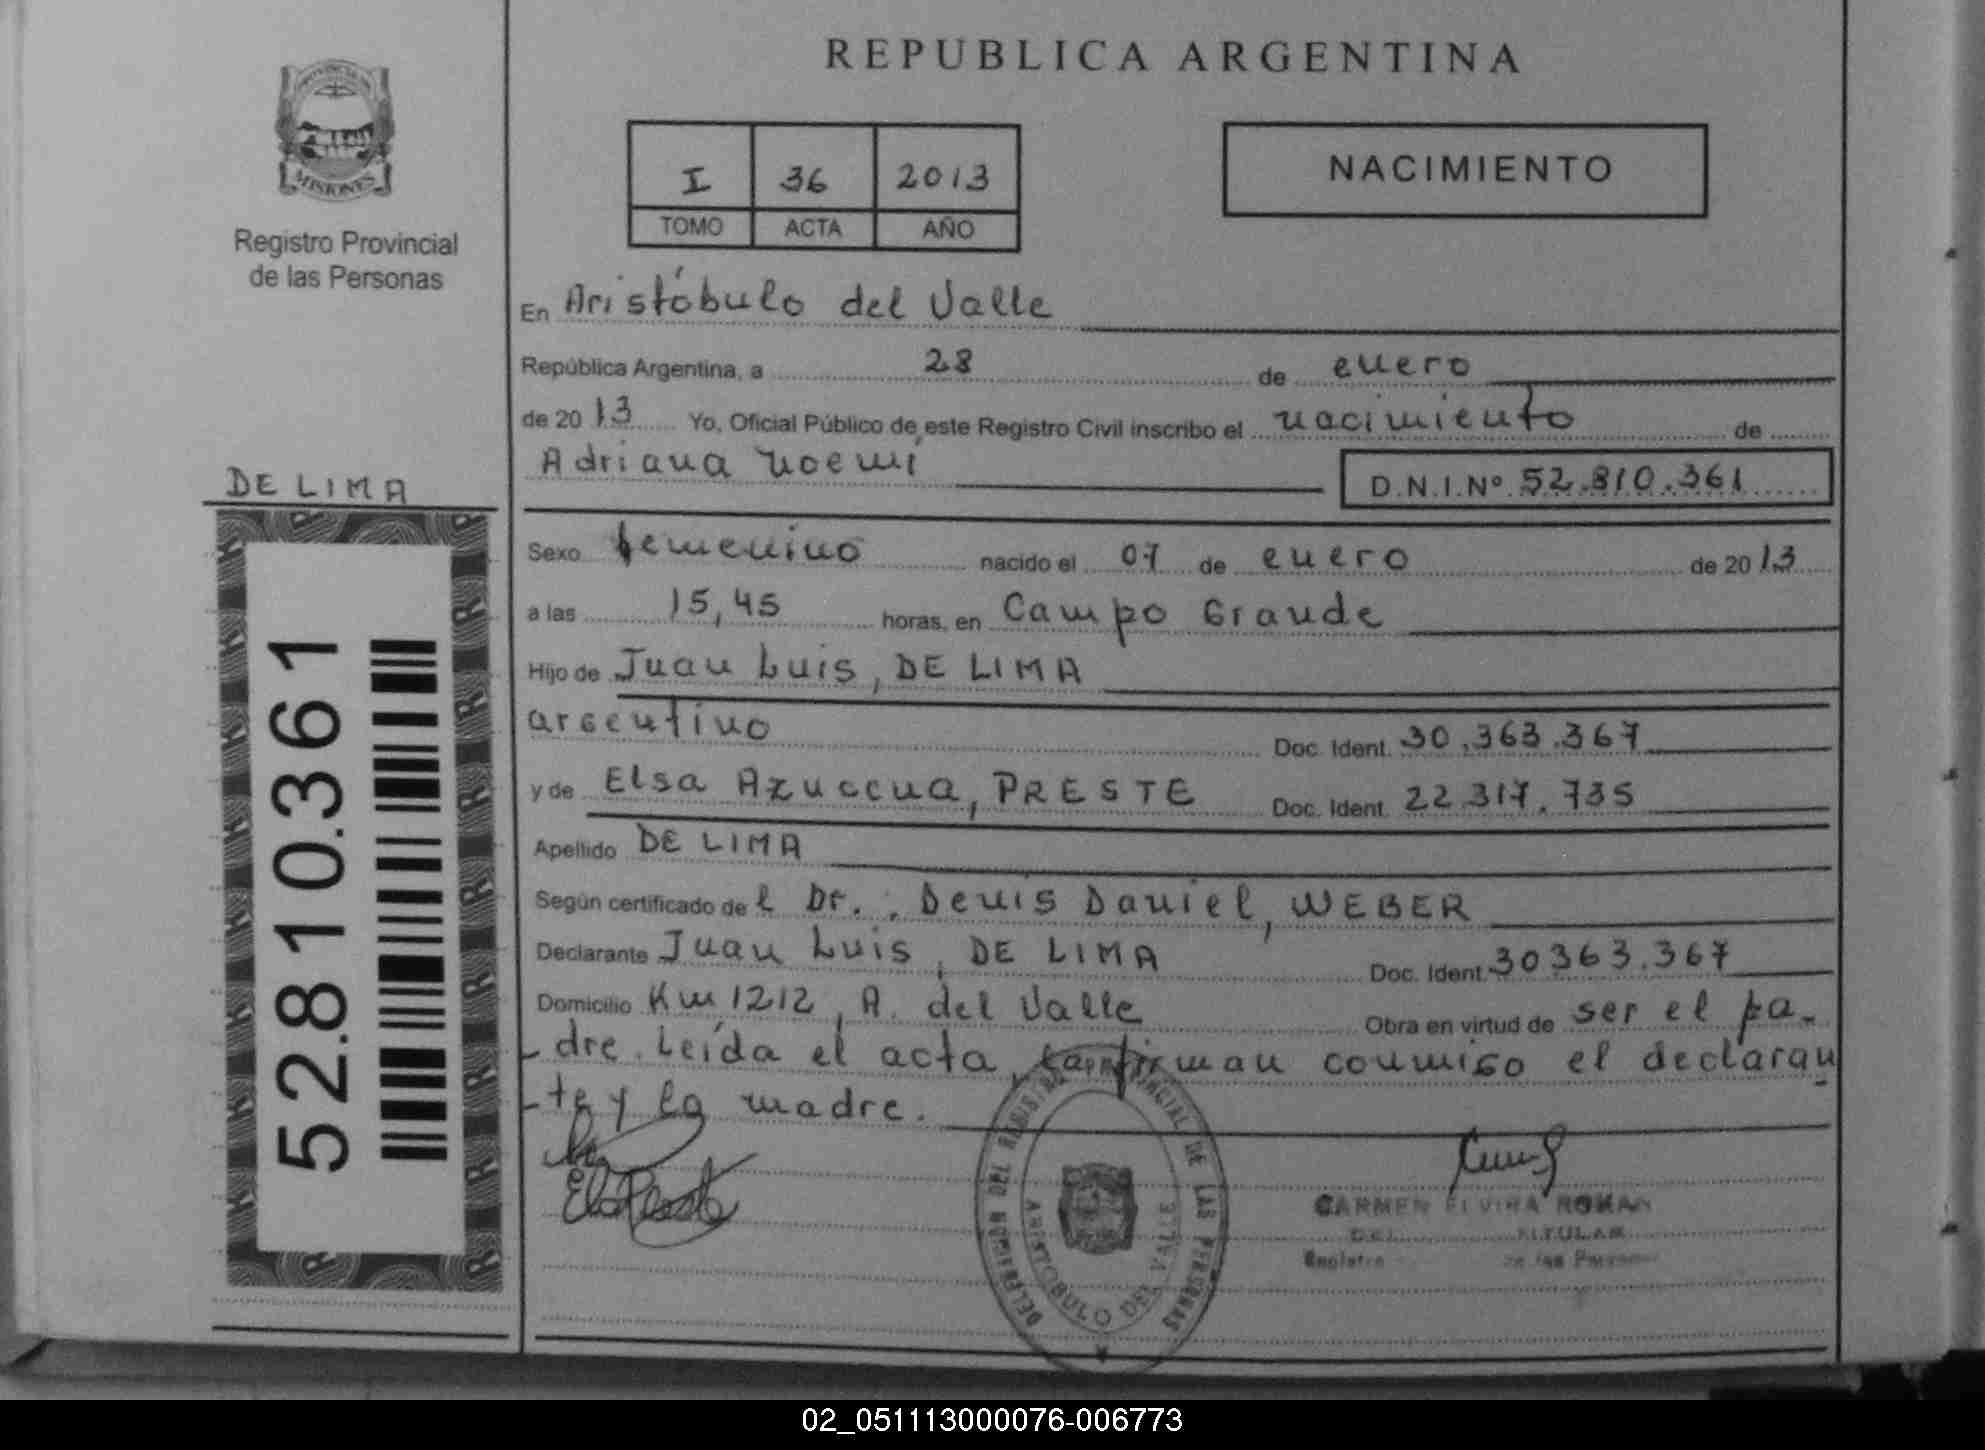 PROVINCIA DE
MISIONES
Registro Provincial
de las Personas
DE LIMA
52.810.361
REPUBLICA ARGENTINA
I 36 2013
TOMO ACTA AÑO
NACIMIENTO
En Aristóbulo del Valle
República Argentina, a 28 de enero
de 2013 Yo, Oficial Público de este Registro Civil inscribo el nacimiento de
Adriana Noemi D.N.I.Nº 52.810.361
Sexo femenino nacido el 07 de enero de 2013
a las 15,45 horas, en Campo Grande
Hijo de Juan Luis, DE LIMA
argentino Doc. Ident. 30.363.367
y de Elsa Azucena, PRESTE Doc. Ident. 22.317.735
Apellido DE LIMA
Según certificado del Dr.: Denis Daniel, WEBER
Declarante Juan Luis, DE LIMA Doc. Ident. 30363.367
Domicilio Km 1212, A. del Valle Obra en virtud de ser el pa-
-dre. Leída el acta, la firman conmigo el declaran
-te y la madre.
DELEGACION DEL REGISTRO PROVINCIAL DE LAS PERSONAS
ARISTOBULO DEL VALLE
CARMEN ELVIRA ROMAN
TITULAR
Registro de las Personas
02_051113000076-006773